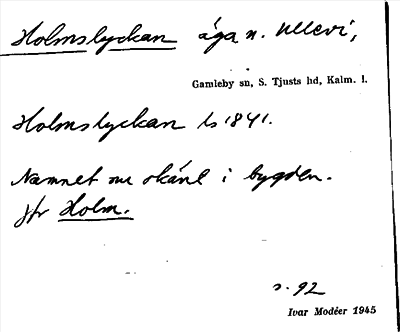 Holmslyckan äga n. Ullevi,
Gamleby sn, S. Tjusts hd, Kalm. l.
Holmslyckan Ls 1841.
Namnet nu okänt i bygden.
Jfr Holm.
s. 92
Ivar Modéer 1945